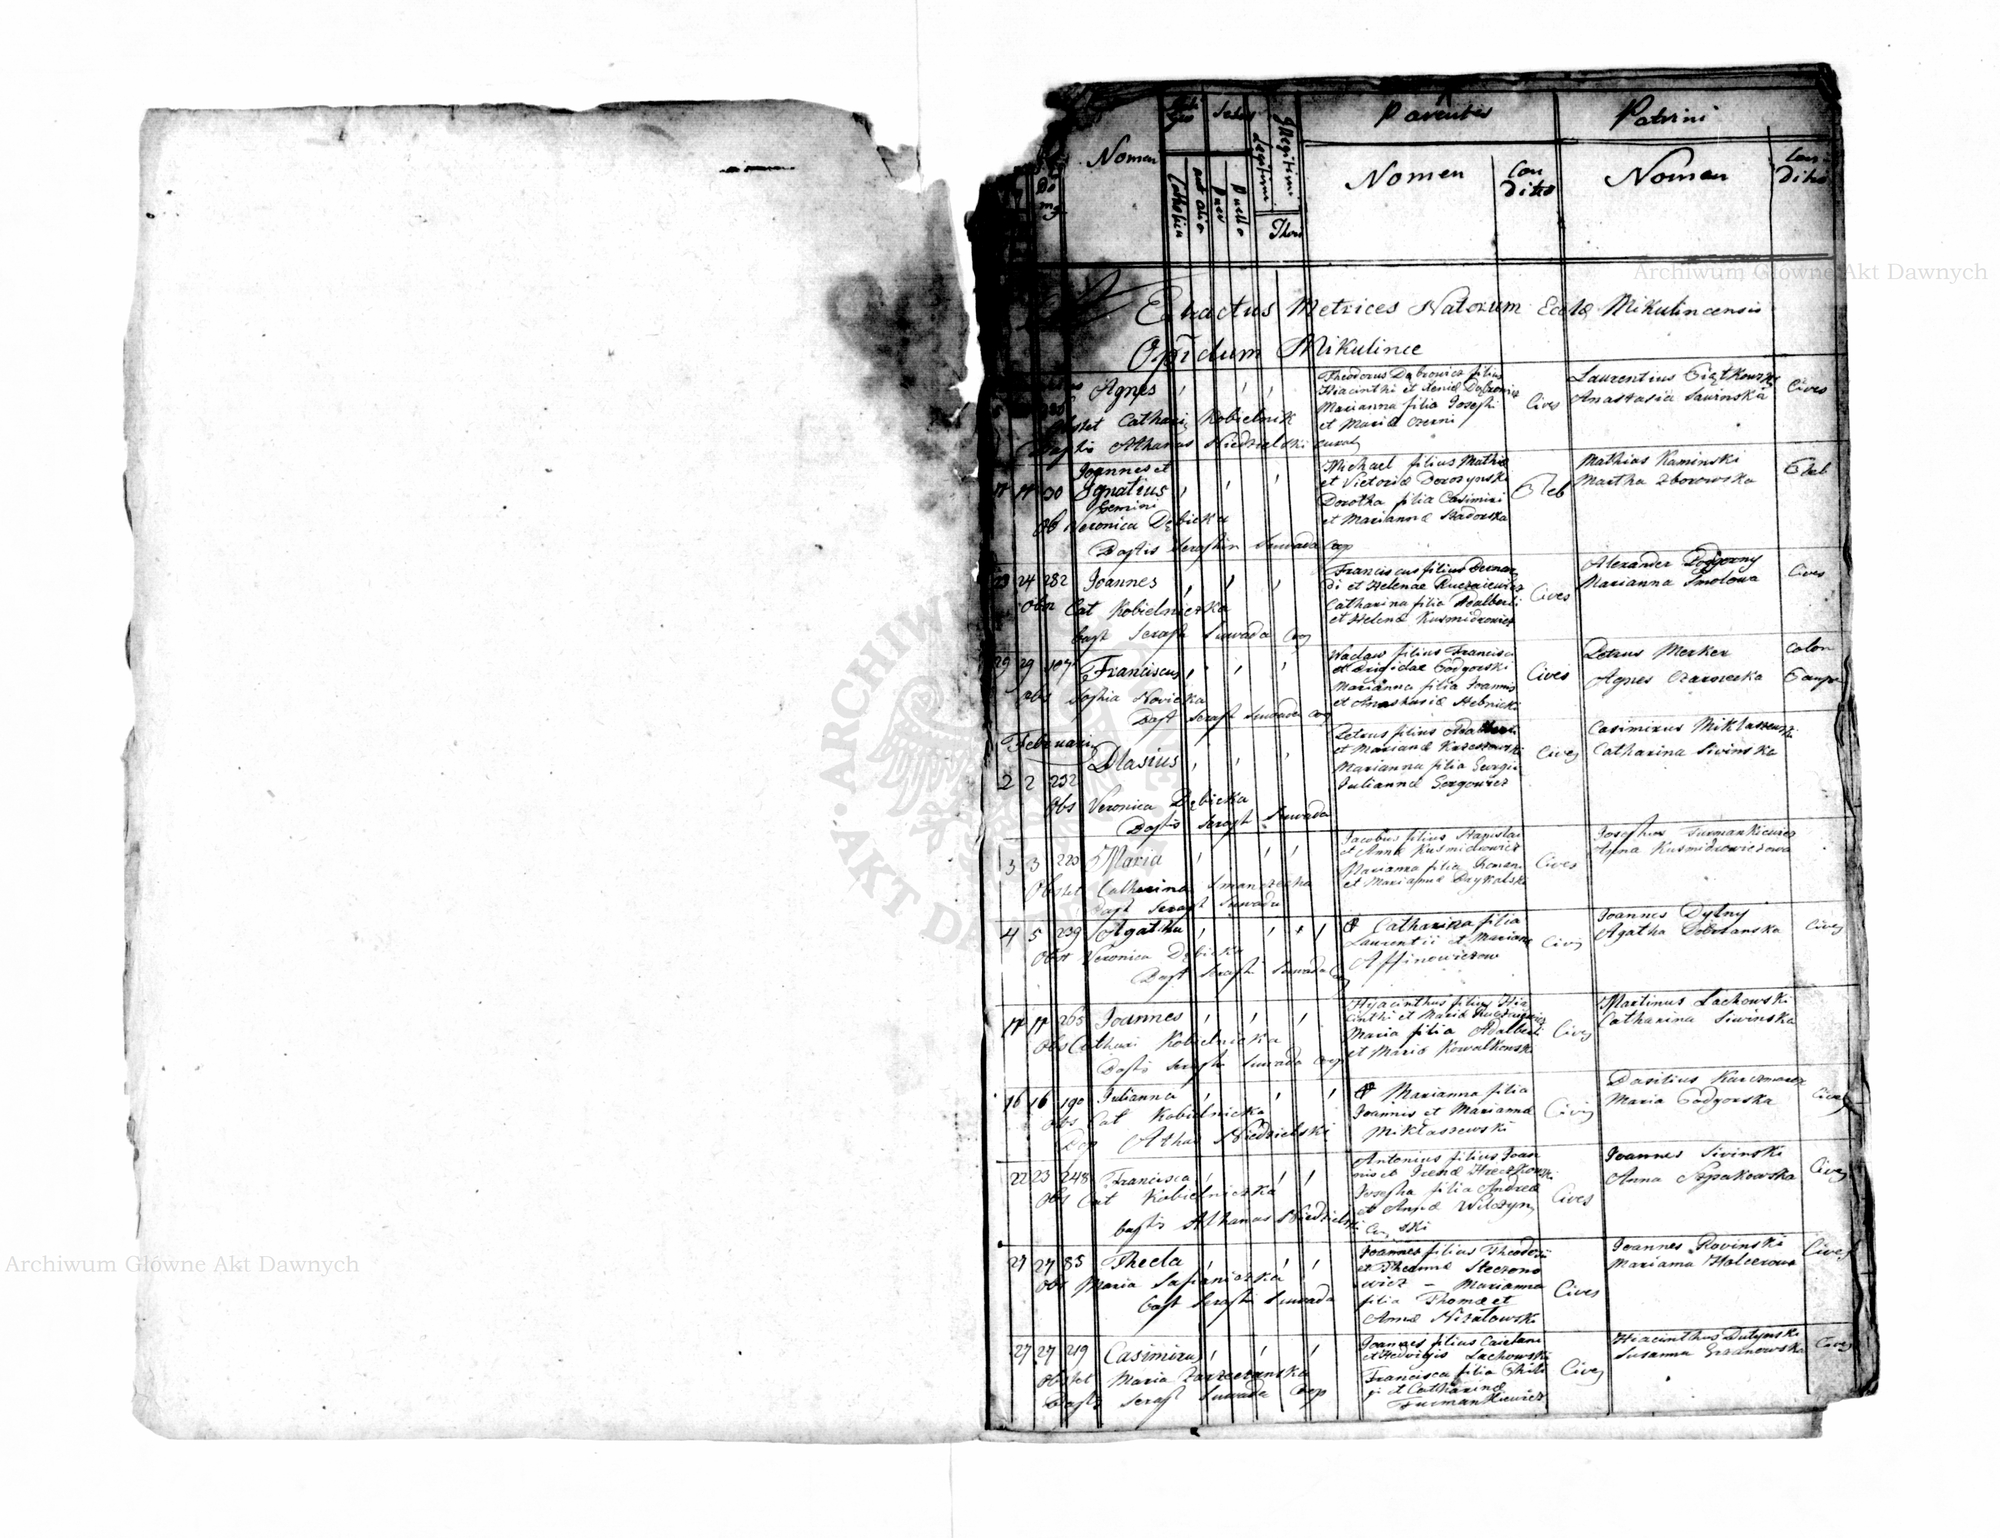 Parentis Patrini
Nomen
Nomen Con
ditio Nomen Con
ditio
Catholica aut alia Puer Puella Legitimi Illegitimi
Thori
Extractus Metrices Natorum Eccl&aelig; Mikulincensis
Opidum Mikulince
Agnes
Obstet Cathari Kobielnik
Bapti Athanas Niedzielski curat
Theodorus Dąbrowicz filius
Hiacinthi et Xeniæ Dąbrowicz
Marianna filia Josephi
et Mariæ Czerni
Cives
Laurentius Piątkowski
Anastasia Sawinska
Cives
17 17 30 Joannes et
Ignatius
Gemini
Ob Veronica Dębicka
Baptis Seraphin Suwada Coop
Michael filius Mathiæ
et Victoriæ Dorozynski
Dorotha filia Casimiri
et Mariannæ Sadorska
Pleb
Mathias Kaminski
Martha Zborowska
Pleb
23 24 282 Joannes
Obst Cat Kobielniczka
bapt Seraph Suwada Coop
Franciscus filius Bernar
di et Helenae Ruczniewicz
Catharina filia Adalberti
et Helenæ Kusmidrowicz
Cives
Alexander Podgorny
Marianna Smolowa
Cives
29 29 107 Franciscus
obs Sophia Novicka
Bapt Seraph Suwada Coop
Waclaw filius Francisci
et Brigidae Podgorski
Marianna filia Joannis
et Anastasiæ Stebnicki
Cives
Petrus Merker
Agnes Czarnecka
colon
Februari
2 2 252 Blasius
Obs Veronica Dębicka
Baptis Seraph Suwada
Petrus filius Adalberti
et Mariannæ Krzeszowski
Marianna filia Georgii
Julianna Gorgowicz
Cives
Casimirus Miklaszewski
Catharina Sivinska
3 3 220 Maria
Obstet Catharina Smanczecha
Bapt Seraph Suwada
Jacobus filius Stanislai
et Annæ Kusmidrowicz
Marianna filia Roman
et Mariannæ Drykalski
Cives
Josephus Furmankiewicz
Anna Kusmidrowiczowa
4 5 239 Agatha
Obst Veronica Dębicka
Bapt Seraph Suwada Coop
Catharina filia
Laurentii et Mariannæ
Affinowiczow
Civis
Joannes Dylny
Agatha Dobrzanska
Cives
17 17 265 Joannes
Obs Cathari Kobielnicka
Baptis Seraph Suwada Coop
Hyacinthus filius Hia
cinthi et Mariæ Ruczniewicz
Maria filia Adalberti
et Mariæ Kowalkowski
Cives
Martinus Lachowski
Catharina Siwinska
16 16 190 Julianna
Obs Cat Kobielnicka
Athan Niedzielski
Marianna filia
Joannis et Mariannæ
Miklaszewski
Civis
Basilius Karczmarz
Maria Podgorska
Cives
22 23 248 Francisca
obs Cat Kobielniczka
baptis Athanas Niedzielski
Antonius filius Joan
nis et Irenæ Hreczkowski
Josepha filia Andreæ
et Annæ Wilczyn
ski
Cives
Joannes Sivinski
Anna Szpakowska
Cives
27 27 85 Thecla
obs Maria Sapianiczka
bapt Seraph Suwada
Joannes filius Theodori
et Theannæ Steczono
wicz - Marianna
filia Thomæ et
Annæ Nizalowski
Cives
Joannes Rovinski
Marianna Halcerowa
Cives
27 27 219 Casimirus
Obstet Maria Zarzeczanska
Baptis Seraph Suwada Coop
Joannes filius Caietani
et Hedvigis Lachowski
Francisca filia Phili
pi et Catharinæ
Furmankiewicz
Cives
Hiacinthus Dutynski
Susanna Grzanowska
Cives
ARCHIWUM GŁÓWNE
AKT DAWNYCH
Archiwum Główne Akt Dawnych
Archiwum Główne Akt Dawnych